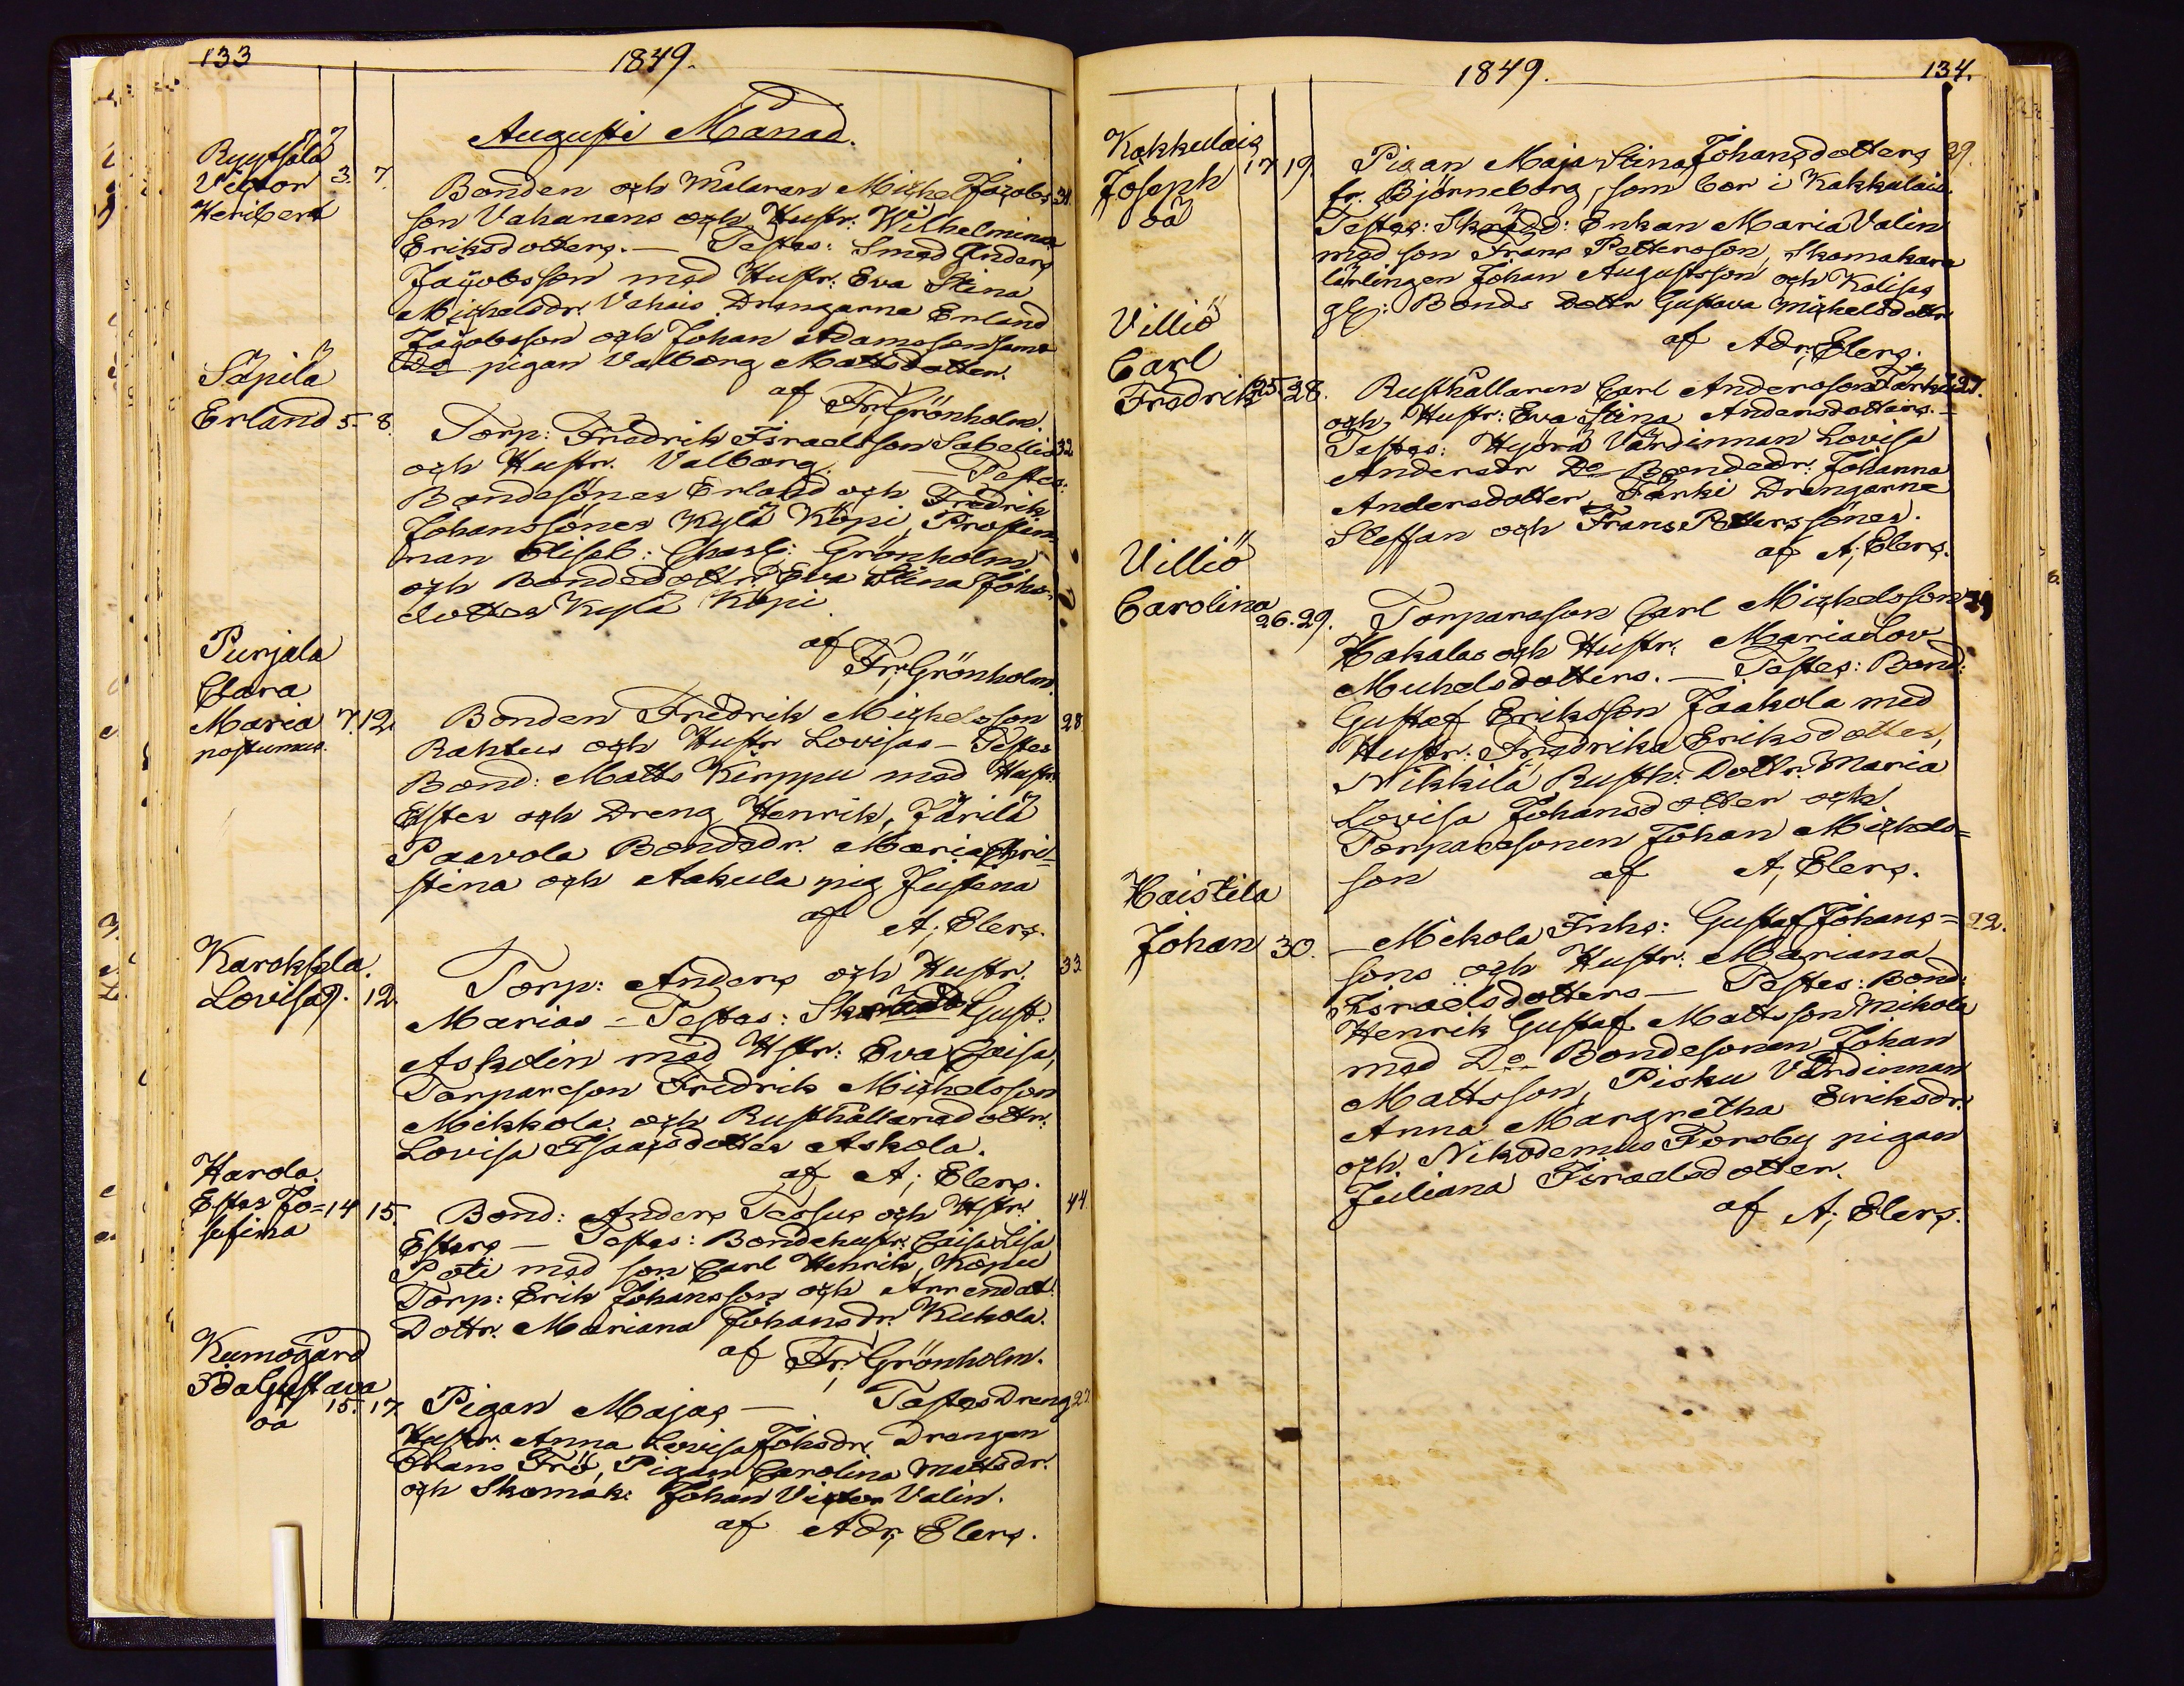 133
1849.
Augusti Månad.
Ryytsälä
Victor 3. 7.
Heribert
Bonden och Målaren Michel Jacobs 31
son Vahanens och Hustr: Wilhelmina
Eriksdotters. — Testes: Smed Anders
Jacobsson med Hustr: Eva Stina
Michelsdr. Vahais Drengarna Erland
Jacobsson och Johan Adamsson samt
Do pigan Valborg Mattsdotter.
af Fr: Grönholm.
Säpilä
Erland 5. 8.
Torp: Fredrik Israelsson Sabellis 32
och Hustr. Valborg. — Testes:
Bondesönes Erland och Fredrik
Johanssönes Kylä Köpi, Prostin
nan Elisab: Charl: Grönholm
och Bondedottr. Eva Stina Johs-
dotter Kylä Köpi
af Fr: Grönholm.
Purjala
Clara
Maria 7. 12.
postumus.
Bonden Fredrik Michelsson 28
Raktus och Hustr Lovisas — Testes
Bond: Matts Kerppu med Hustr.
Ester och Dreng Henrik, Järilä
Paavola Bondedr. Maria Chri-
stina och Aakula pig Justina
af A; Elers.
Karoksela.
Lovisa 9. 12.
Torp: Anders och Hustr. 33
Marias — Testes: Skrädd Gust:
Askolin med Hstr: Eva Caisa,
Torpareson Fredrik Michelsson
Mikkola och Rusthållaredottr.
Lovisa Isaacsdotter Askola.
af A; Elers.
Harola.
Ester Jo= 14 15.
sefina
Bond: Anders Tessus och Hstr: 44
Esters — Testes: Bondehustr: Caisa Lisa
Poti med son Carl Henrik, Kopu
Torp: Erik Johansson och Arrendat:
Dottr. Mariana Johansdr. Kuhola.
af Fr: Grönholm.
Kumogård
Ida Gustava
oä 15. 17.
Pigan Majas — Testes Dreng 27
Hustr. Anna Lovisa Johsdr, Drengen
Frans Frö, Pigan Carolina Mattsdr.
och Skomak: Johan Victor Valin.
af Adr; Elers.
1849.
134.
Kakkulais
Joseph 17 19.
oä
Pigan Maja Stina Johansdotters 29.
fr. Björneborg, som bor i Kakkulais.
Testes: Skrädd: Enkan Maria Valin
med son Frans Pettersson, Skomakare
lärlingen Johan Augustsson och
Bonde Dottr Gustava Michelsdottr
af Adr; Elers.
Villiö
Carl
Fredrik 25. 28.
Rusthållaren Carl Andersson Färki 27.
och Hustr: Eva Stina Andersdotters. —
Testes: Hyörä Värdinnan Lovisa
Andersdr Do Bondedr: Johanna
Andersdotter, Färki Drengarne
Steffan och Frans Petterssönes.
af A; Elers.
Villiö
Carolina
26. 29.
Torpareson Carl Michelsson 29
Hakalas och Hustr. Maria Lov
Michelsdotters. — Testes: Bond:
Gustaf Eriksson Jaakola med
Hustr: Fredrika Eriksdotter,
Nikkilä Rusth: Dottr. Maria
Lovisa Johansdotter och
Torparesonen Johan Michels=
son af A; Elers.
Haistila
Johan 30.
— Mekola Inhs: Gustaf Johans= 22.
sons och Hustr: Mariana
Israelsdotters — Testes: Bond:
Henrik Gustaf Mattsson Mikola
med Do Bondesonen Johan
Mattsson, Pisku Värdinnan
Anna Margretha Eriksdr.
och Nikodemus Forsby pigan
Juliana Israelsdotter.
af A; Elers.